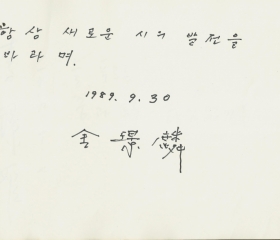 항상 새로운 시의 발전을
바라며.
1989. 9. 30
金